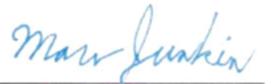 Marv Junkin